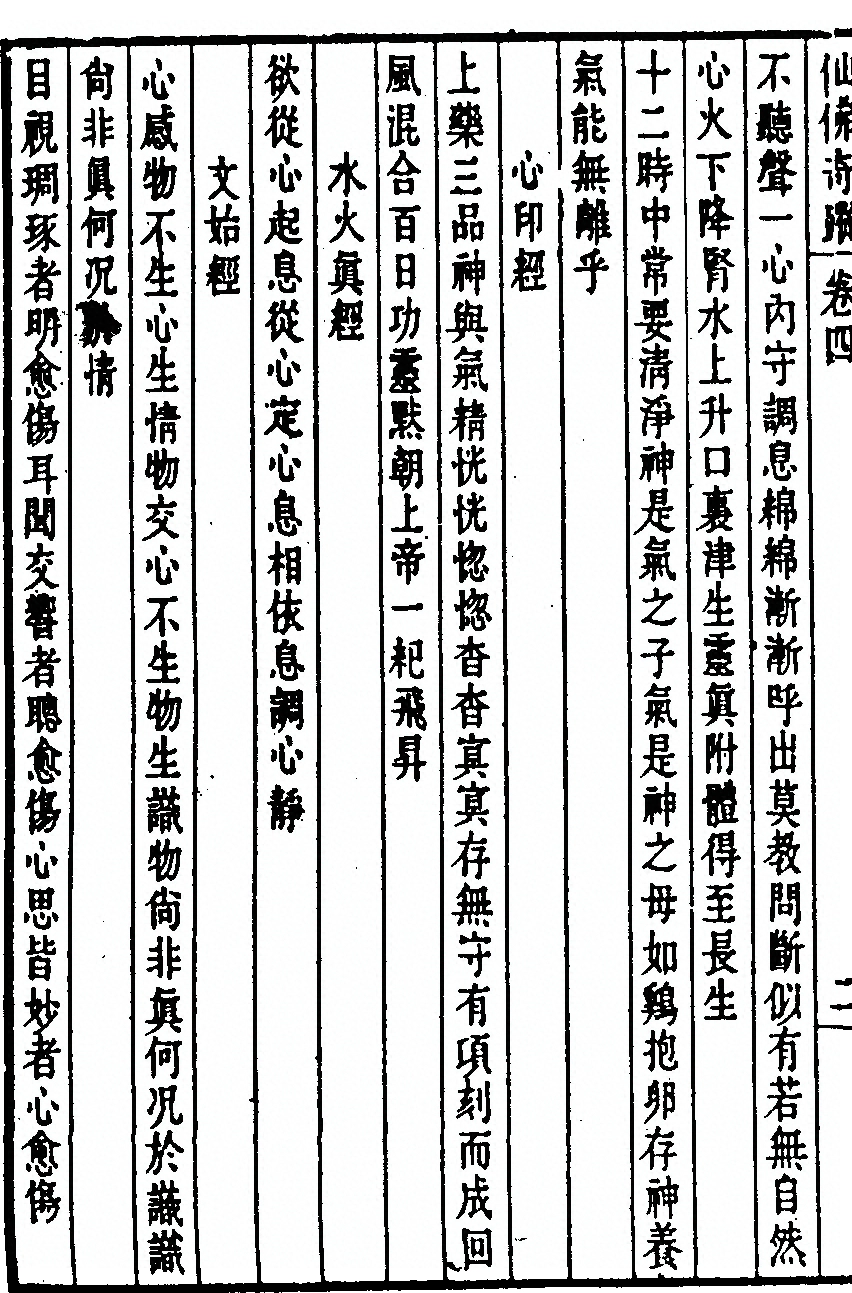 仙佛奇蹤 卷四 二
不聽聲一心內守調息綿綿漸漸呼出莫教間斷似有若無自然
心火下降腎水上升口裏津生靈眞附體得至長生
十二時中常要清淨神是氣之子氣是神之母如鷄抱卵存神養
氣能無離乎
心印經
上藥三品神與氣精恍恍惚惚杳杳冥冥存無守有項刻而成回
風混合百日功靈默朝上帝一紀飛昇
水火眞經
欲從心起息從心定心息相依息調心靜
文始經
心感物不生心生情物交心不生物生識物尙非眞何况於識識
尙非眞何况情
目視琱琢者明愈傷耳聞交響者聰愈傷心思皆妙者心愈傷